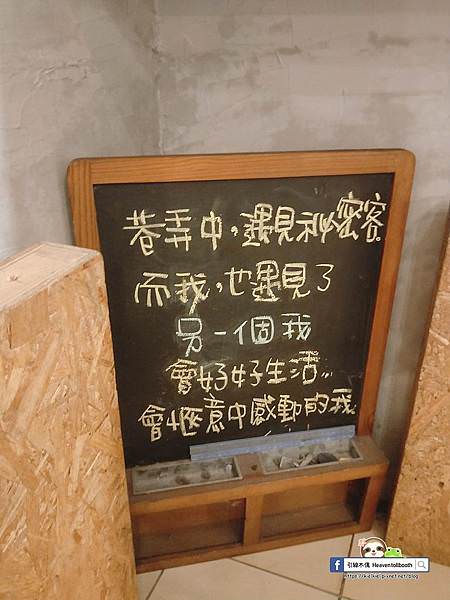 巷弄中,遇見祕密客.
而我,也遇見了
另一個我
會好好生活...
會愜意中感動的我
引線不傷 Heaventollbooth
https://kielkiel.pixnet.net/blog